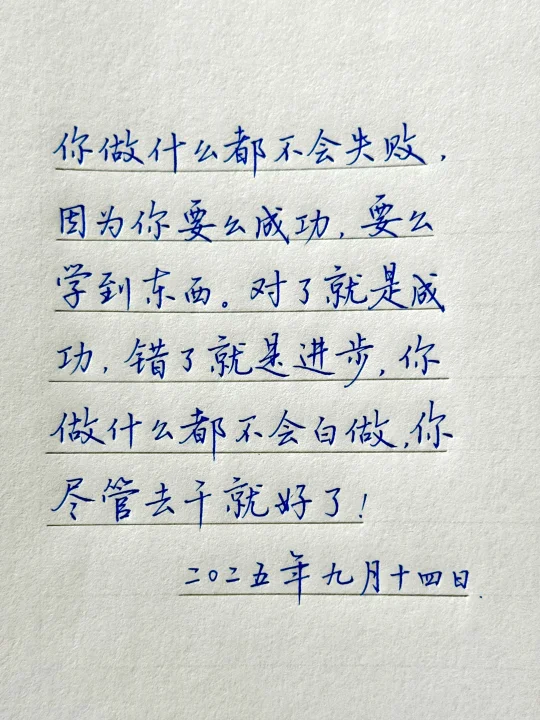 你做什么都不会失败，
因为你要么成功，要么
学到东西。对了就是成
功，错了就是进步，你
做什么都不会白做，你
尽管去干就好了！
二〇二五年九月十四日.